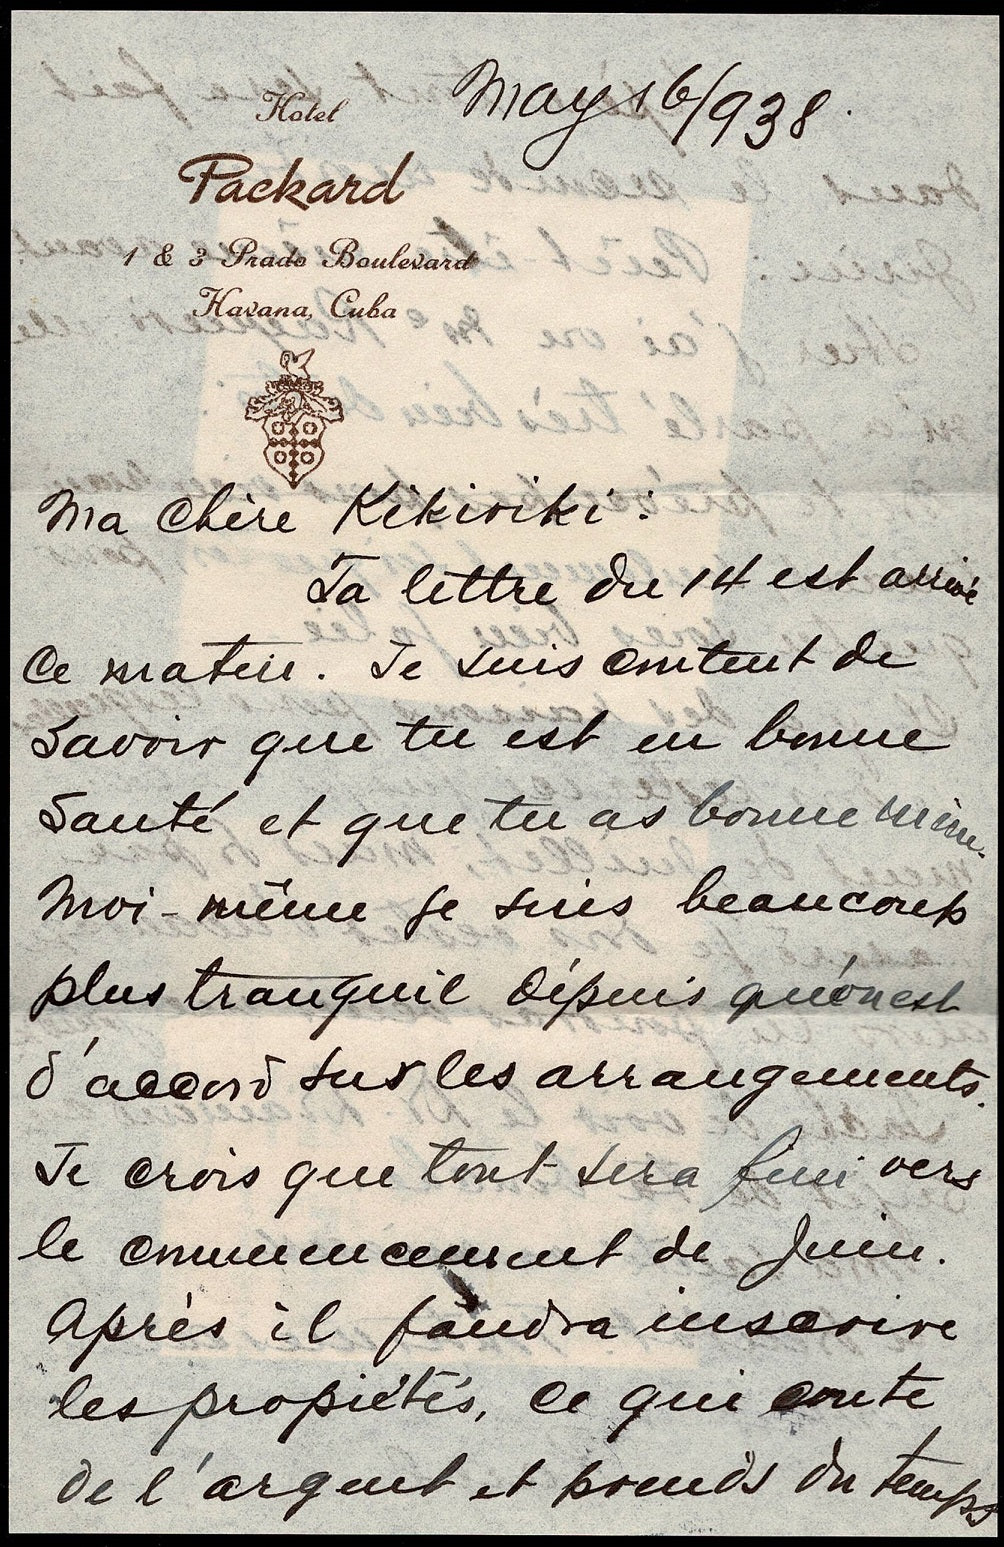 Hotel
May 16/938.
Packard
1 & 3 Prado Boulevard
Havana, Cuba
Ma Chère Kikiriki:
Ta lettre du 14 est arrivé
Ce matin. Je suis content de
Savoir que tu est en bonne
Santé et que tu as bonne mine.
Moi-même je suis beaucoup
plus tranquil dépuis qu'on est
d'accord sur les arrangements.
Je crois que tout sera fini vers
le commencement de Juin.
Après il faudra inscrire
les propiétés, ce qui coute
de l'argent et prends du temps